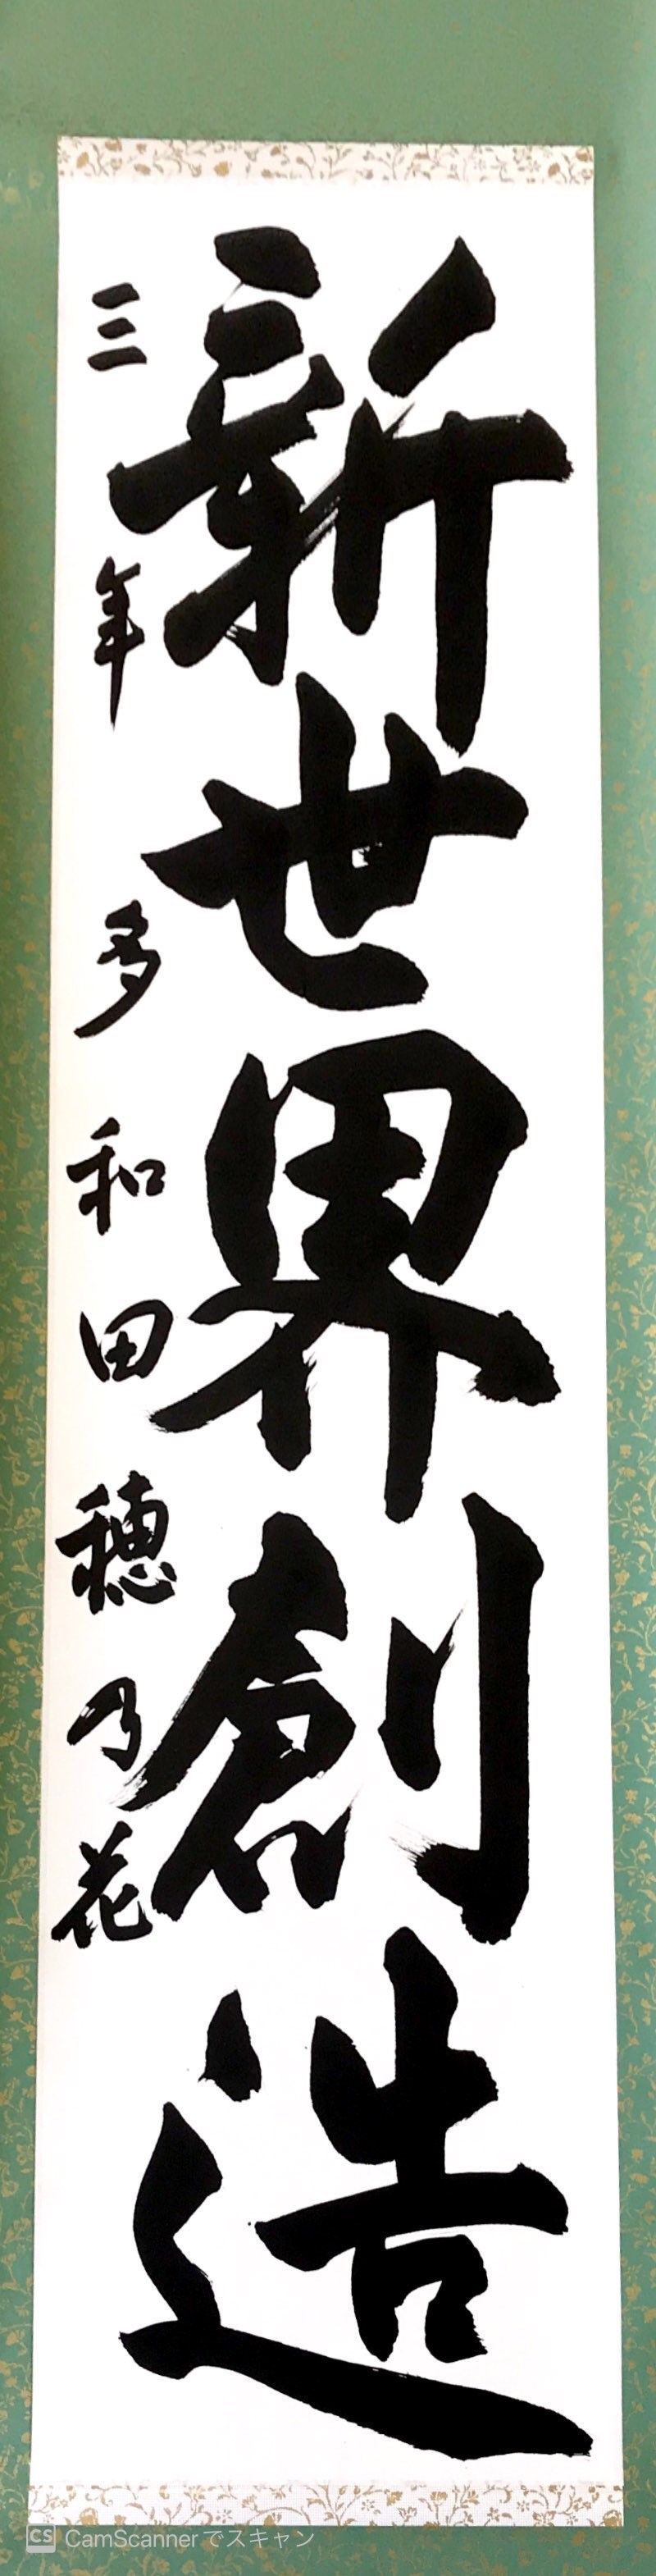 新世界創造
三年 多和田穂乃花
CS CamScannerでスキャン